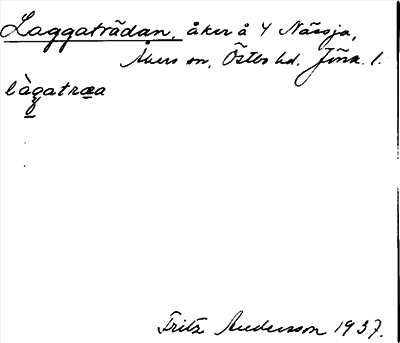 Laggaträdan, åker å 4 Nässja,
Åkers sn, Östbo hd, Jönk. l.
làgatræa
Fritz Andersson 1937.